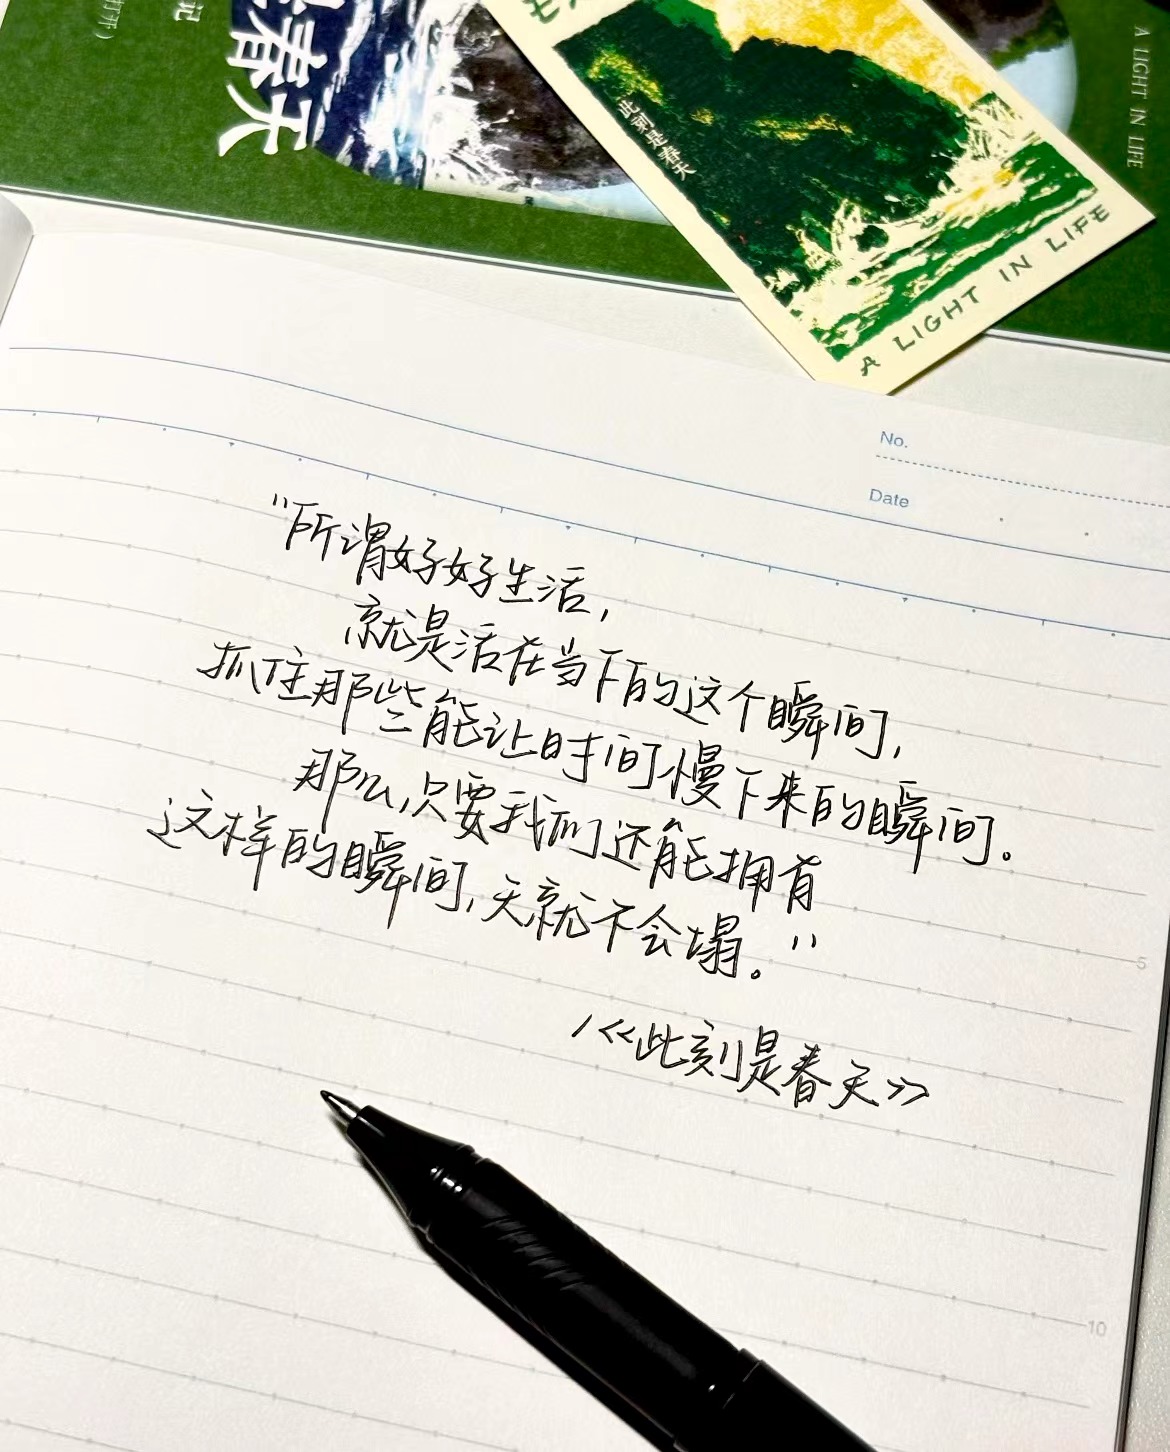 春天
记
A LIGHT IN LIFE
此刻是春天
A LIGHT IN LIFE
No.
Date
"所谓好好生活,
就是活在当下的这个瞬间,
抓住那些能让时间慢下来的瞬间。
那么,只要我们还能拥有
这样的瞬间,天就不会塌。"
/《此刻是春天》
5
10